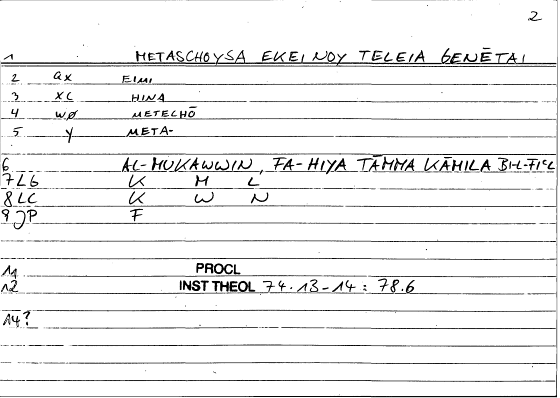 2
1 METASCHOYSA EKEINOY TELEIA GENĒTAI
2 ax EIMI
3 xc HINA
4 wø METECHŌ
5 y META-
6 AL-MUKAWWIN, FA-HIYA TĀMMA KĀMILA BI-L-FIʿL
7 LG K M L
8 LC K W N
9 JP F
11 PROCL
12 INST THEOL 74.13-14 : 78.6
14?